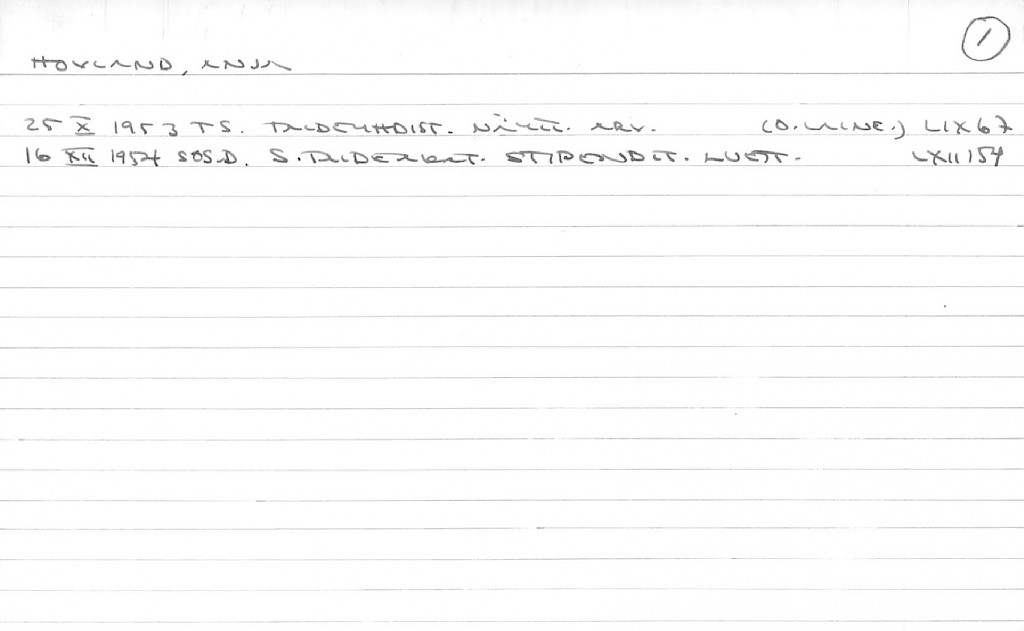 1
HOVLAND, ANJA
25 X 1953 TS. TAIDEYHDIST. NÄYTT. ARV. (O. LAINE.) LIX 67
16 XII 1954 SOS.D. S. TAIDEAKAT. STIPENDIT. LUETT. LXII 154